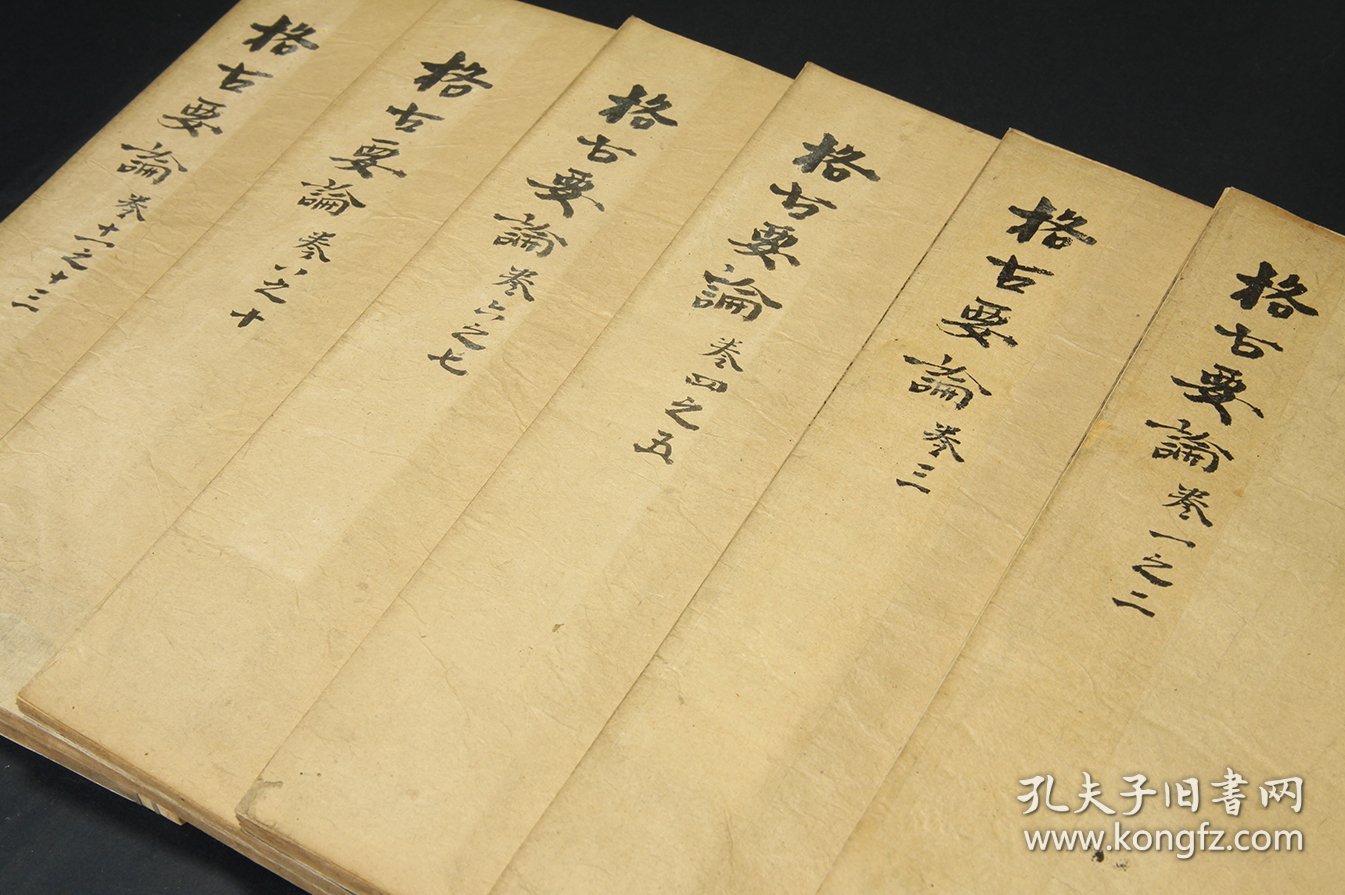 格古要論 卷一之二
格古要論 卷三
格古要論 卷四之五
格古要論 卷六之七
格古要論 卷八之十
格古要論 卷十一之十三
孔夫子旧書网
www.kongfz.com